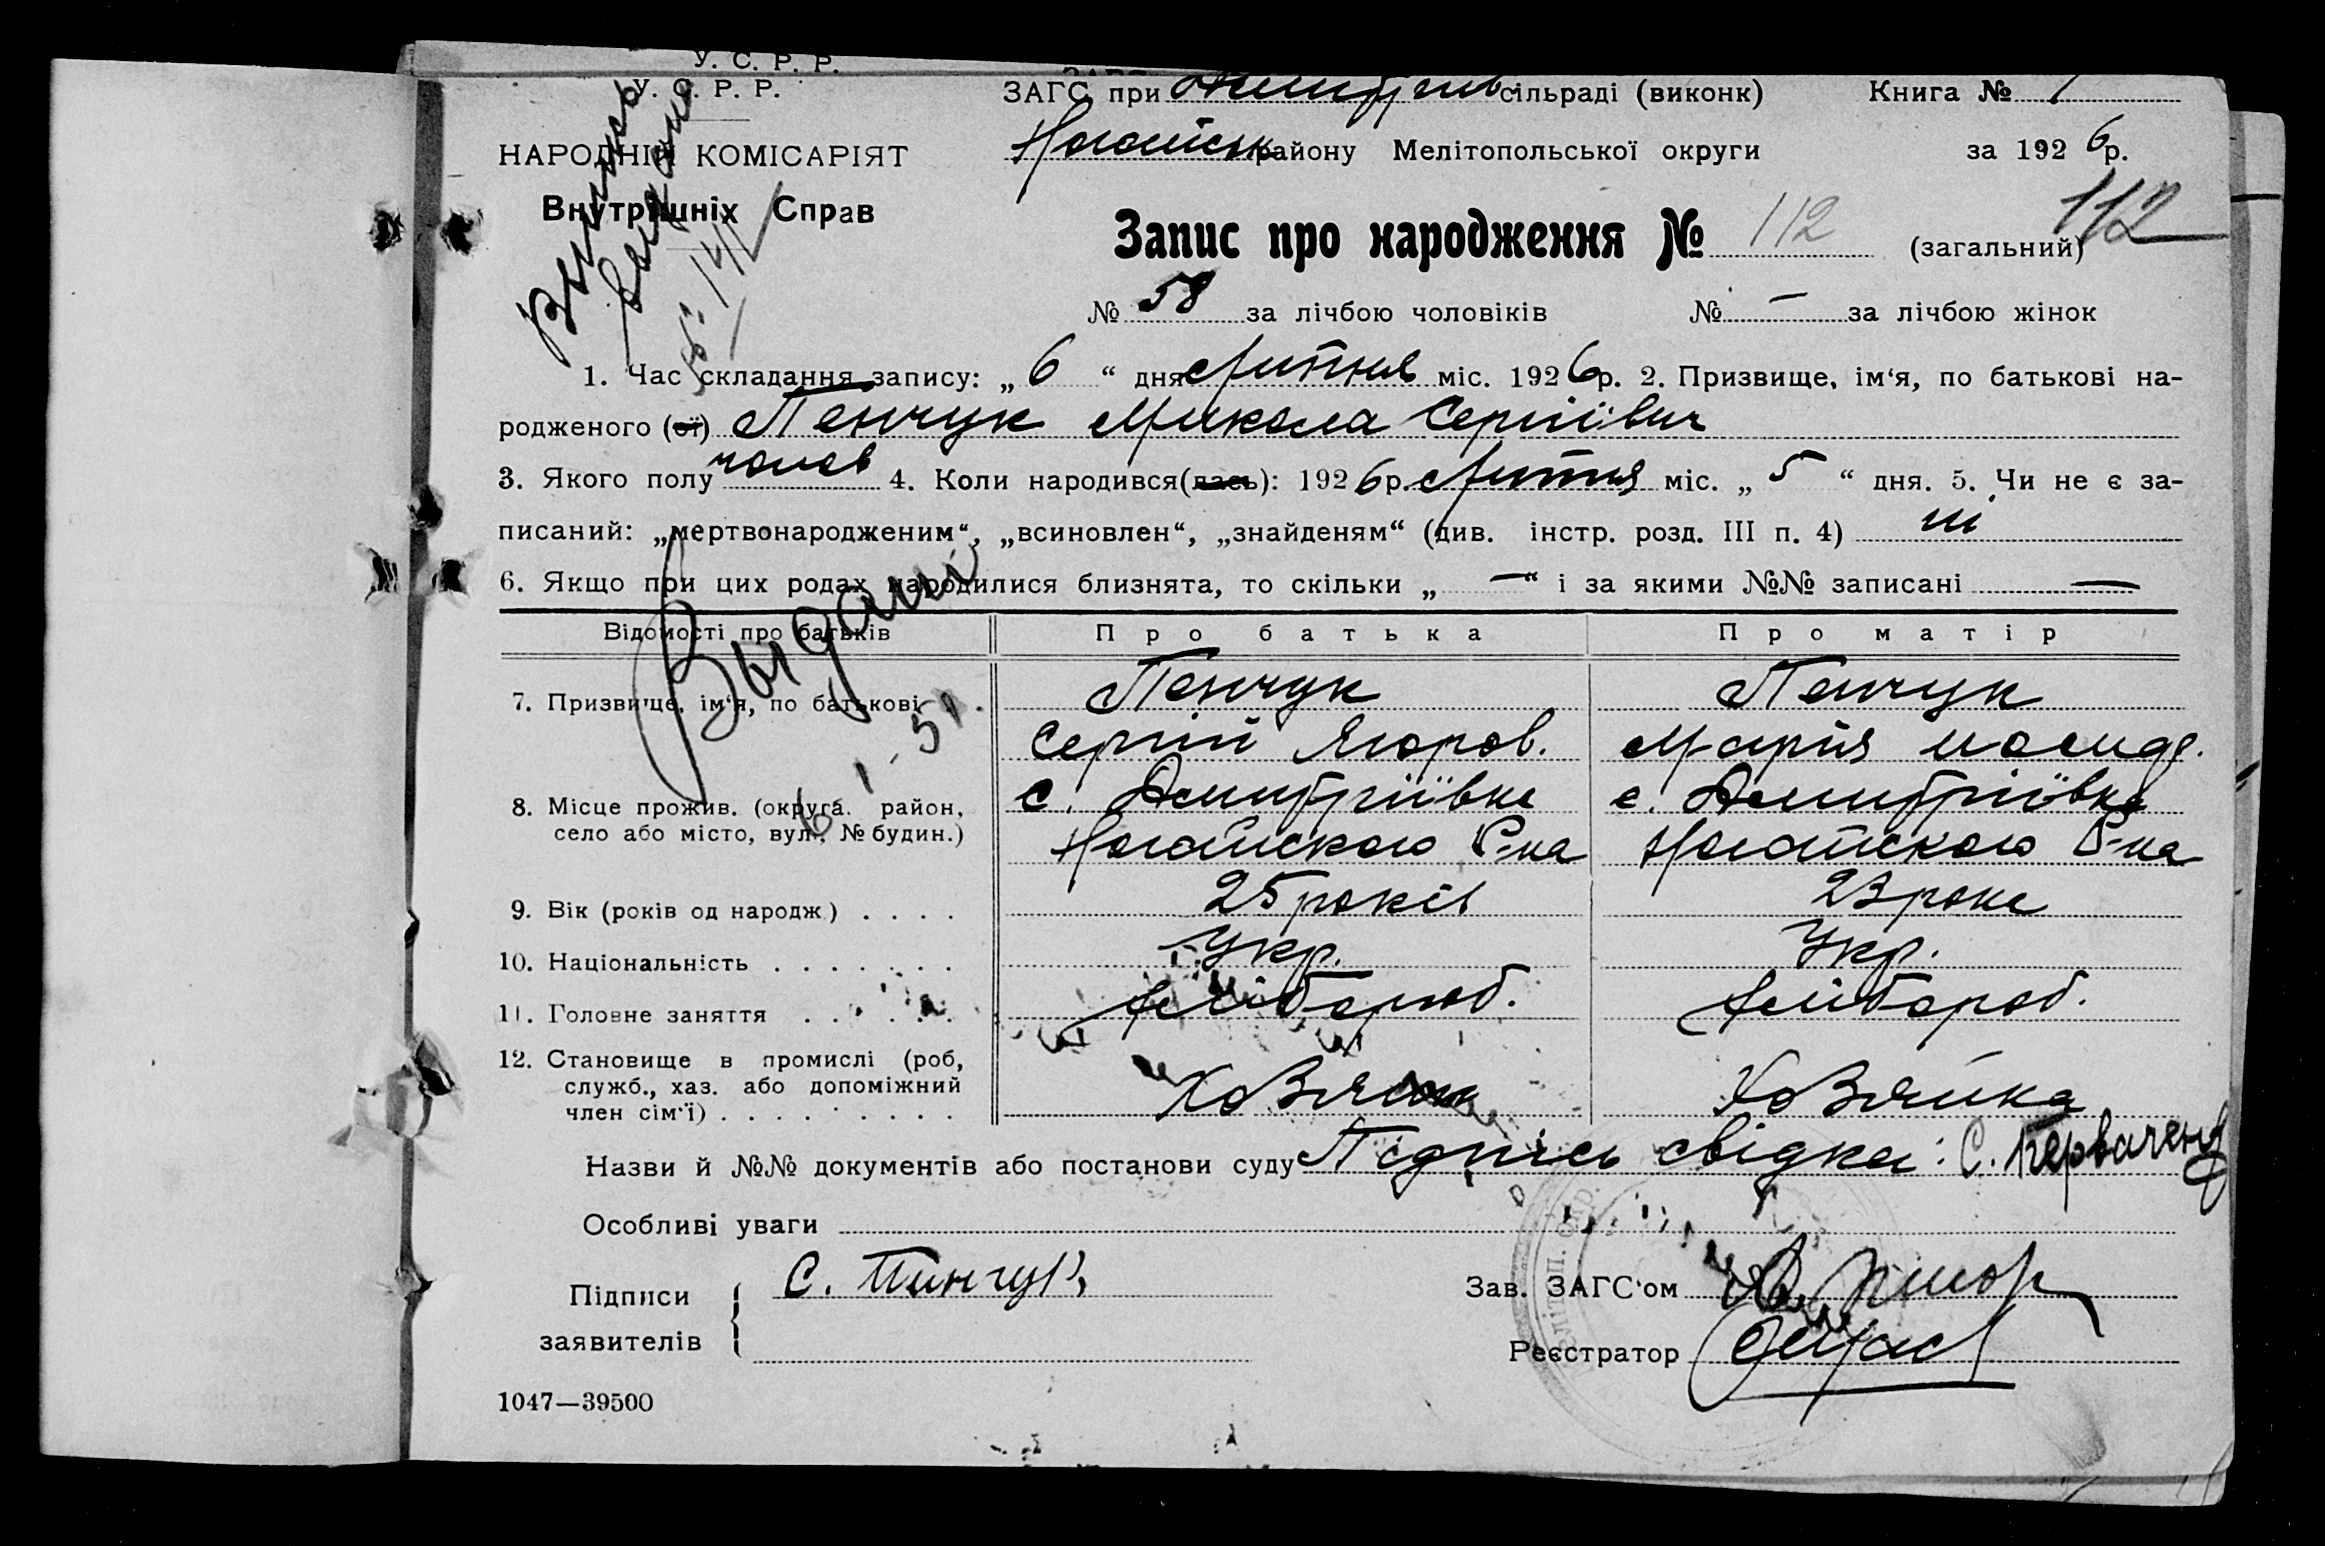 У. С. Р. Р.
У. С. Р. Р.
ЗАГС при сільраді (виконк) Книга № 1
НАРОДНІЙ КОМІСАРІЯТ
Внутрішніх Справ
Ногайськ району Мелітопольської округи за 1926р.
Запис про народження № 112 (загальний) 112
№ 58 за лічбою чоловіків № — за лічбою жінок
1. Час складання запису: „ 6 “ дня Липня міс. 1926р. 2. Призвище, ім‘я, по батькові на-
родженого (ої) Пенчук Микола Сергійович
3. Якого полу чолов 4. Коли народився(лась): 1926р. Липня міс. „ 5 “ дня. 5. Чи не є за-
писаний: „мертвонародженим“, „всиновлен“, „знайденям“ (див. інстр. розд. III п. 4) ні
6. Якщо при цих родах народилися близнята, то скільки „ — “ і за якими №№ записані —
Выдан
6-1-51.
Відомості про батьків Про батька Про матір
7. Призвище, ім‘я, по батькові Пенчук Пенчук
Сергій Ягоров. Марія
8. Місце прожив. (округа. район, с. Дмитріївка с. Дмитріївка
село або місто, вул., № будин.) Ногайского Р-на Ногайского Р-на
9. Вік (років од народж.) . . . . 25 років 23 роки
10. Національність . . . . . . . Укр. Укр.
11. Головне заняття . . . . . . Хлібороб. Хлібороб.
12. Становище в промислі (роб,
служб., хаз. або допоміжний
член сім‘ї) . . . . . . . . . Хозяин Хозяйка
Назви й №№ документів або постанови суду Підпись свідка: С.
Особливі уваги
Підписи
заявителів С. Пинчук
Зав. ЗАГС‘ом
Реєстратор
1047—39500